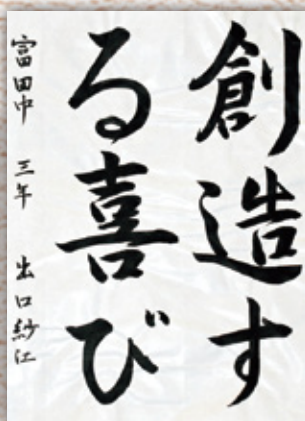 創造す
る喜び
富田中 三年 出口紗江